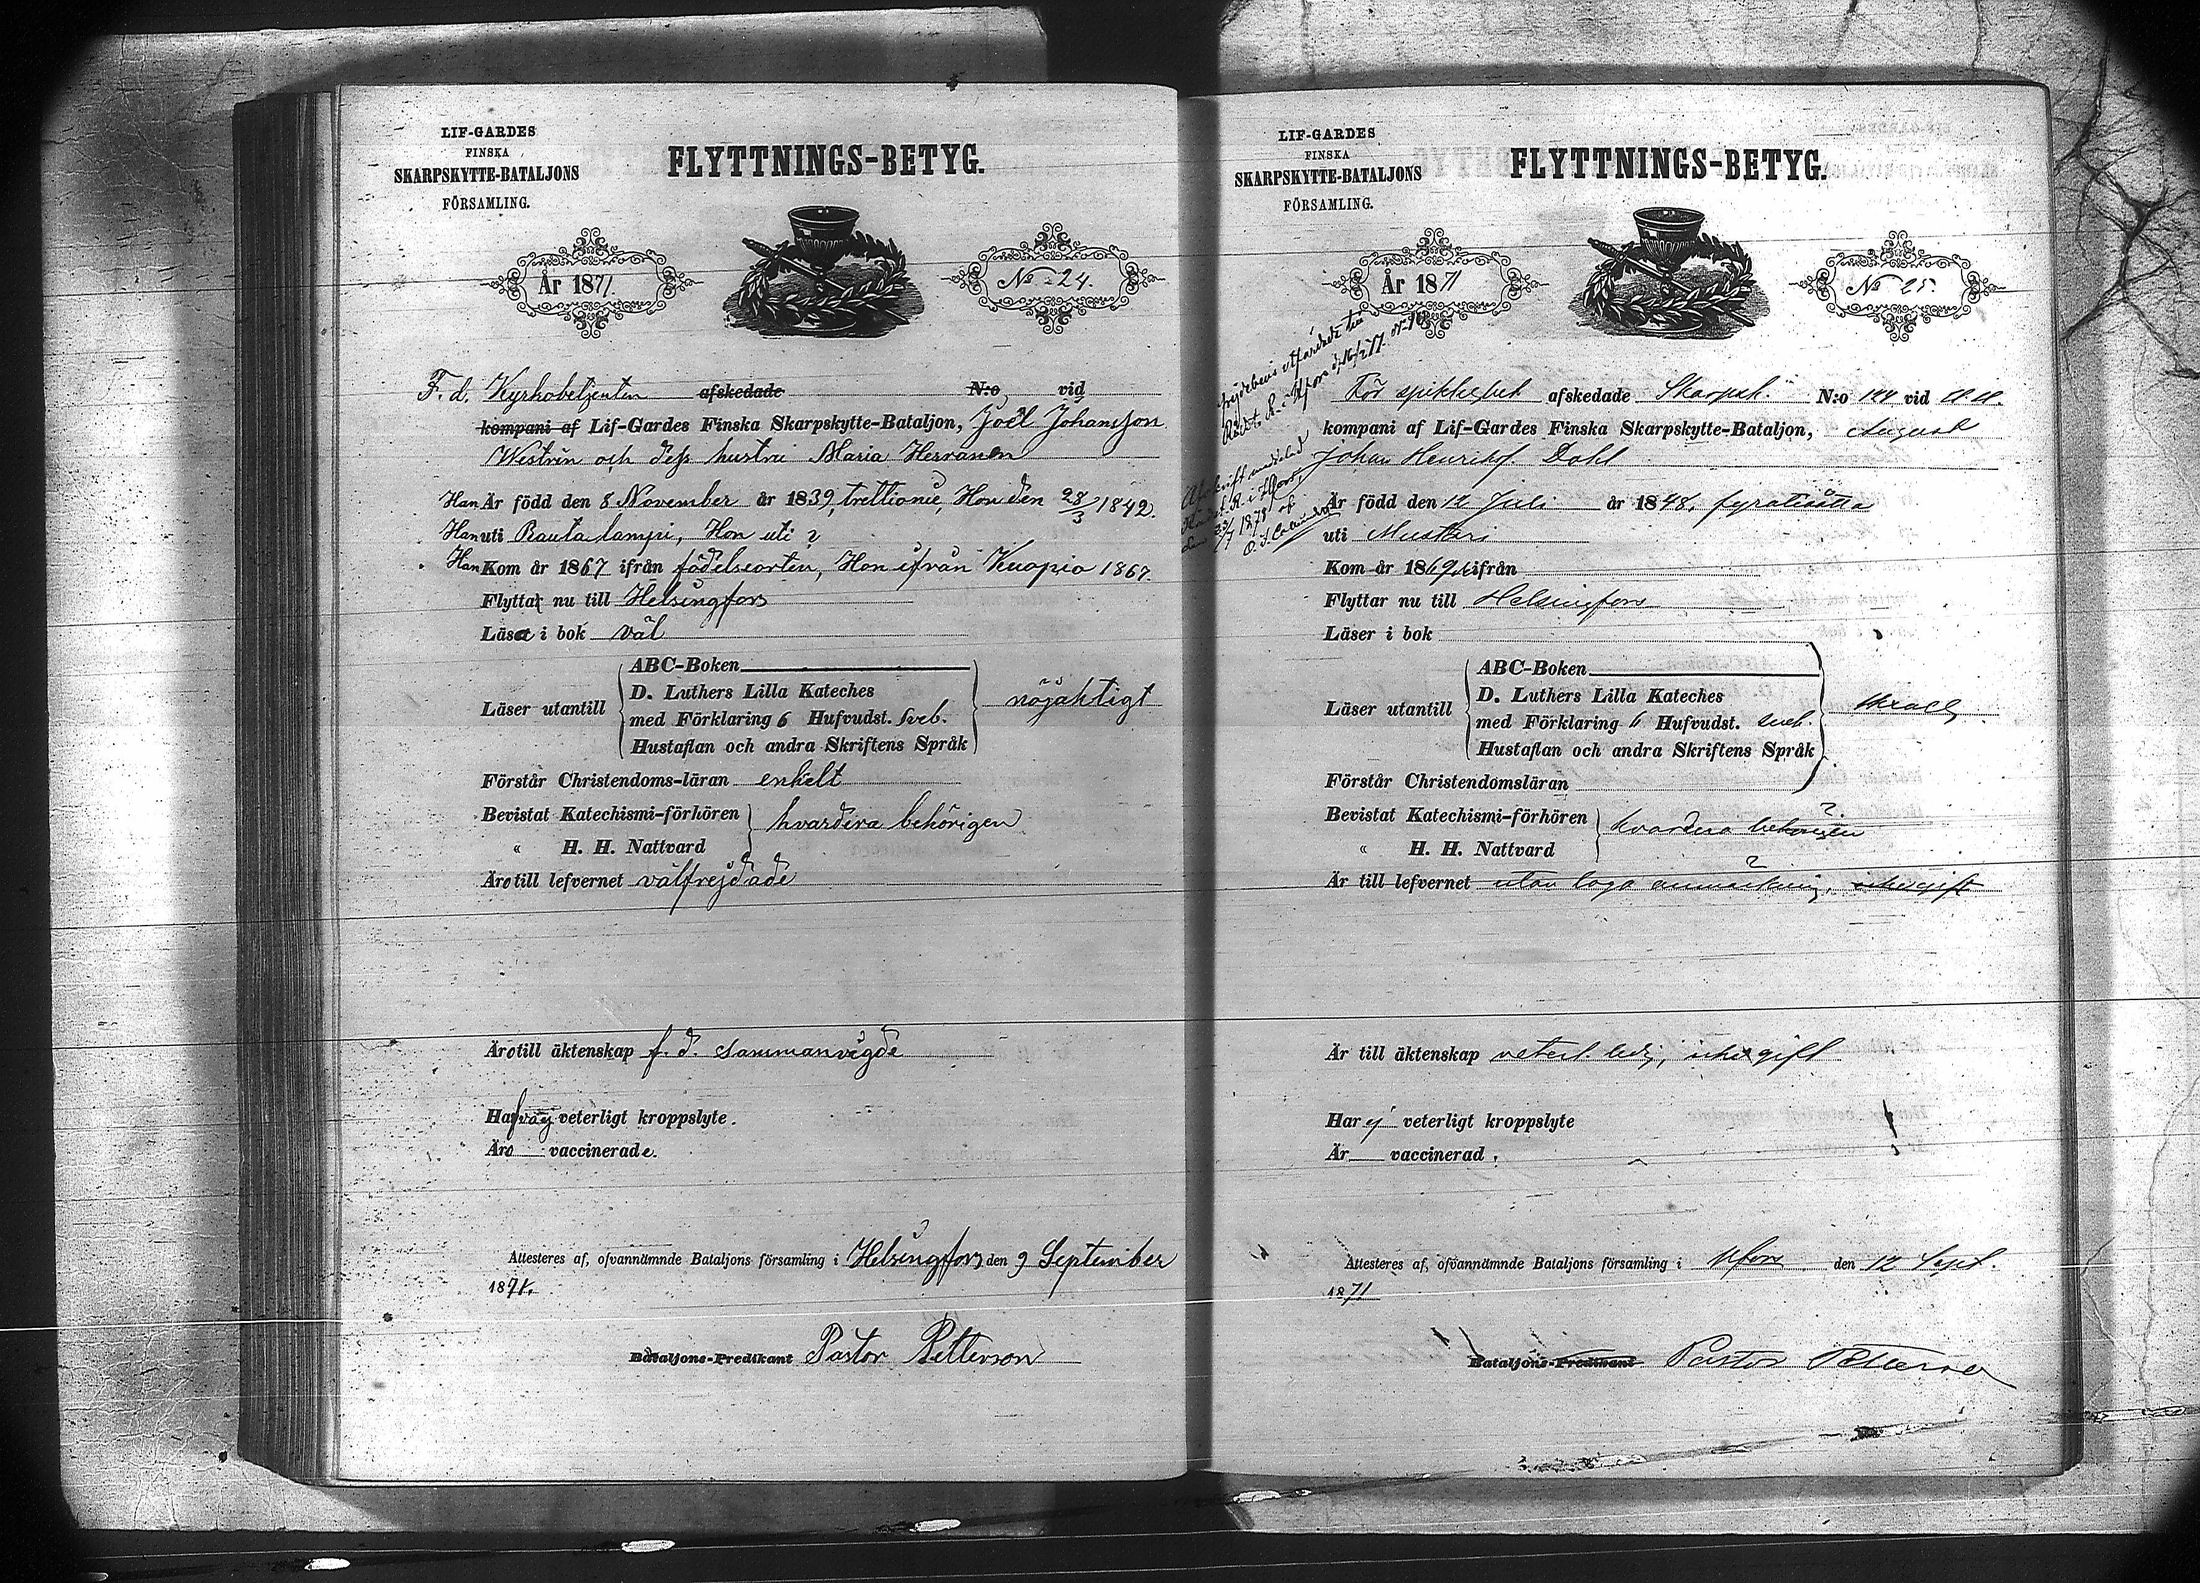 LIF-GARDES
FINSKA
SKARPSKYTTE-BATALJONS
FÖRSAMLING.
FLYTTNINGS-BETYG.
År 1871.
No 24.
F. d. Kyrkobetjenten afskedade N:o vid
kompani af Lif-Gardes Finska Skarpskytte-Bataljon, Joël Johansson
Westrén och dess hustru Maria Herranen
Han Är född den 8 November år 1839, trettionie, Hon den 28/3 1842.
Han uti Rautalampi, Hon uti
Han Kom år 1867 ifrån födelseorten, Hon ifrån Kuopio 1867.
Flytta nu till Helsingfors
Läsa i bok väl
Läser utantill
ABC-Boken
D. Luthers Lilla Kateches
med Förklaring 6 Hufvudst. sveb.
Hustaflan och andra Skriftens Språk
nöjaktigt
Förstår Christendoms-läran enkelt
Bevistat Katechismi-förhören
" H. H. Nattvard
hvardera behörigen
Äro till lefvernet välfrejdade
Äro till äktenskap f. d. sammanvigde
Hafva ej veterligt kroppslyte.
Äro vaccinerade.
Attesteres af, ofvannämnde Bataljons församling i Helsingfors den 9 September
1871.
Bataljons-Predikant Pastor Petterson
LIF-GARDES
FINSKA
SKARPSKYTTE-BATALJONS
FÖRSAMLING.
FLYTTNINGS-BETYG.
År 1871
No 25
För afskedade Skarpsk. N:o 124 vid
kompani af Lif-Gardes Finska Skarpskytte-Bataljon, August
Johan Henrikss. Dahl
Är född den 12 Juli år 1848, fyratioåtta
uti
Kom år 1869 ifrån
Flyttar nu till Helsingfors
Läser i bok
Läser utantill
ABC-Boken
D. Luthers Lilla Kateches
med Förklaring 6 Hufvudst. sveb.
Hustaflan och andra Skriftens Språk
Förstår Christendomsläran
Bevistat Katechismi-förhören
" H. H. Nattvard
hvardera behörigen
Är till lefvernet utan laga anmärkning,
Är till äktenskap veterl. ledig, icke gift
Har ej veterligt kroppslyte
Är vaccinerad.
Attesteres af, ofvannämnde Bataljons församling i Hfors den 12 Sept.
1871
Bataljons-Predikant Pastor Petterson